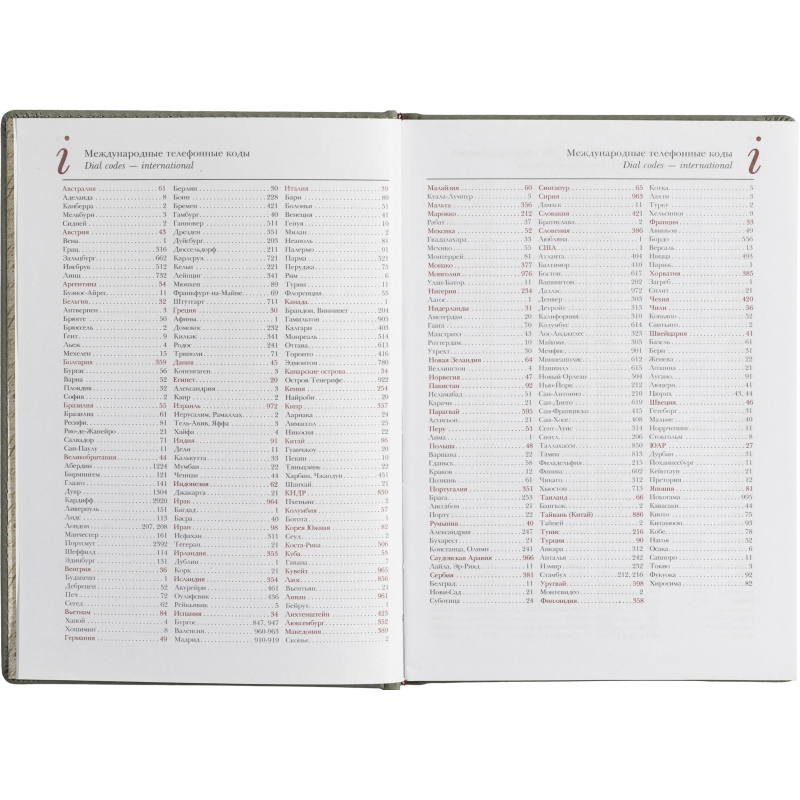 i
Международные телефонные коды
Dial codes — international
Австралия 61
Аделаида 8
Канберра 2
Мельбурн 3
Сидней 2
Австрия 43
Вена 1
Грац 316
Зальцбург 662
Инсбрук 512
Линц 732
Аргентина 54
Буэнос-Айрес 11
Бельгия 32
Антверпен 3
Брюгге 50
Брюссель 2
Гент 9
Льеж 4
Мехелен 15
Болгария 359
Бургас 56
Варна 52
Пловдив 32
София 2
Бразилия 55
Бразилиа 61
Ресифи 81
Рио-де-Жанейро 21
Салвадор 71
Сан-Паулу 11
Великобритания 44
Абердин 1224
Бирмингем 121
Глазго 141
Дувр 1304
Кардифф 2920
Ливерпуль 151
Лидс 113
Лондон 207, 208
Манчестер 161
Портсмут 2392
Шеффилд 114
Эдинбург 131
Венгрия 36
Будапешт 1
Дебрецен 52
Печ 72
Сегед 62
Вьетнам 84
Ханой 4
Хошимин 8
Германия 49
Берлин 30
Бонн 228
Бремен 421
Гамбург 40
Ганновер 511
Дрезден 351
Дуйсбург 203
Дюссельдорф 211
Карлсруэ 721
Кельн 221
Лейпциг 341
Мюнхен 89
Франкфурт-на-Майне 69
Штутгарт 711
Греция 30
Афины 1
Домокос 232
Килкис 341
Родос 241
Триполи 71
Дания 45
Копенгаген 3
Египет 20
Александрия 3
Каир 2
Израиль 972
Иерусалим, Рамаллах 2
Тель-Авив, Яффа 3
Хайфа 4
Индия 91
Дели 11
Калькутта 33
Мумбаи 22
Ченнаи 44
Индонезия 62
Джакарта 21
Ирак 964
Багдад 1
Басра 40
Иран 98
Исфахан 311
Тегеран 21
Ирландия 353
Дублин 1
Корк 21
Исландия 354
Акурейри 461
Рейкьявик 5
Испания 34
Бургос 847, 947
Валенсия 960-963
Мадрид 910-919
Италия 39
Бари 80
Болонья 51
Венеция 41
Генуя 10
Милан 2
Неаполь 81
Палермо 91
Парма 521
Перуджа 75
Рим 6
Турин 11
Флоренция 55
Канада 1
Брандон, Виннипег 204
Гамильтон 905
Калгари 403
Монреаль 514
Оттава 613
Торонто 416
Эдмонтон 780
Канарские острова 34
Остров Тенерифе 922
Кения 254
Найроби 20
Кипр 357
Ларнака 24
Лимасол 25
Никосия 22
Китай 86
Гуанчжоу 20
Пекин 10
Тяньцзин 22
Харбин, Чжаодун 451
Шанхай 21
КНДР 850
Пхеньян 2
Колумбия 57
Богота 1
Корея Южная 82
Сеул 2
Коста-Рика 506
Куба 53
Гавана 7
Кувейт 965
Лаос 856
Вьентьян 21
Ливан 961
Бейрут 1
Лихтенштейн 423
Люксембург 352
Македония 389
Скопье 2
i
Международные телефонные коды
Dial codes — international
Малайзия 60
Куала-Лумпур 3
Мальта 356
Марокко 212
Рабат 37
Мексика 52
Гвадалахара 33
Мехико 55
Монтеррей 81
Монако 377
Монголия 976
Улан-Батор 11
Нигерия 234
Лагос 1
Нидерланды 31
Амстердам 20
Гаага 70
Маастрихт 43
Роттердам 10
Утрехт 30
Новая Зеландия 64
Веллингтон 4
Норвегия 47
Пакистан 92
Исламабад 51
Карачи 21
Парагвай 595
Асунсьон 21
Перу 51
Лима 1
Польша 48
Варшава 22
Гданьск 58
Краков 12
Познань 61
Португалия 351
Брага 253
Лиссабон 21
Порту 22
Румыния 40
Александрия 247
Бухарест 21
Констанца, Олимп 241
Саудовская Аравия 966
Лайла, Эр-Рияд 1
Сербия 381
Белград 11
Нови-Сад 21
Суботица 24
Сингапур 65
Сирия 963
Дамаск 11
Словакия 421
Братислава 2
Словения 386
Любляна 1
США
Атланта 404
Балтимор 410
Бостон 617
Вашингтон 202
Даллас 972
Денвер 303
Детройт 313
Калифорния 209
Колумбус 614
Лос-Анджелес 213
Майами 305
Мемфис 901
Миннеаполис 612
Нашвилл 615
Новый Орлеан 504
Нью-Йорк 212
Сан-Антонио 210
Сан-Диего 619
Сан-Франциско 415
Сан-Хосе 408
Сент-Луис 314
Таллахасси 850
Тампа 813
Филадельфия 215
Финикс 602
Чикаго 312
Хьюстон 713
Таиланд 66
Бангкок 2
Тайвань (Китай) 886
Тайпей 2
Тунис 216
Турция 90
Анкара 312
Анталья 242
Измир 232
Стамбул 212, 216
Уругвай 598
Монтевидео 2
Финляндия 358
Котка 5
Лахти 3
Турку 2
Хельсинки 9
Франция 33
Авиньон 49
Бордо 556
Версаль 13
Ницца 493
Париж 1
Хорватия 385
Загреб 1
Сплит 21
Чехия 420
Чили 56
Консепсьо 52
Сантьяго 2
Швейцария 41
Базель 61
Берн 31
Женева 22
Лозанна 21
Лугано 91
Люцерн 41
Цюрих 43, 44
Швеция 46
Гетеборг 31
Мальме 40
Норрчепинг 11
Стокгольм 8
ЮАР 27
Дурбан 31
Йоханнесбург 11
Кейптаун 21
Претория 12
Япония 81
Иокогама 45
Кавасаки 44
Киото 75
Китакюсю 93
Кобе 78
Нагоя 52
Осака 6
Саппоро 11
Токио 3
Фукуока 92
Хиросима 82